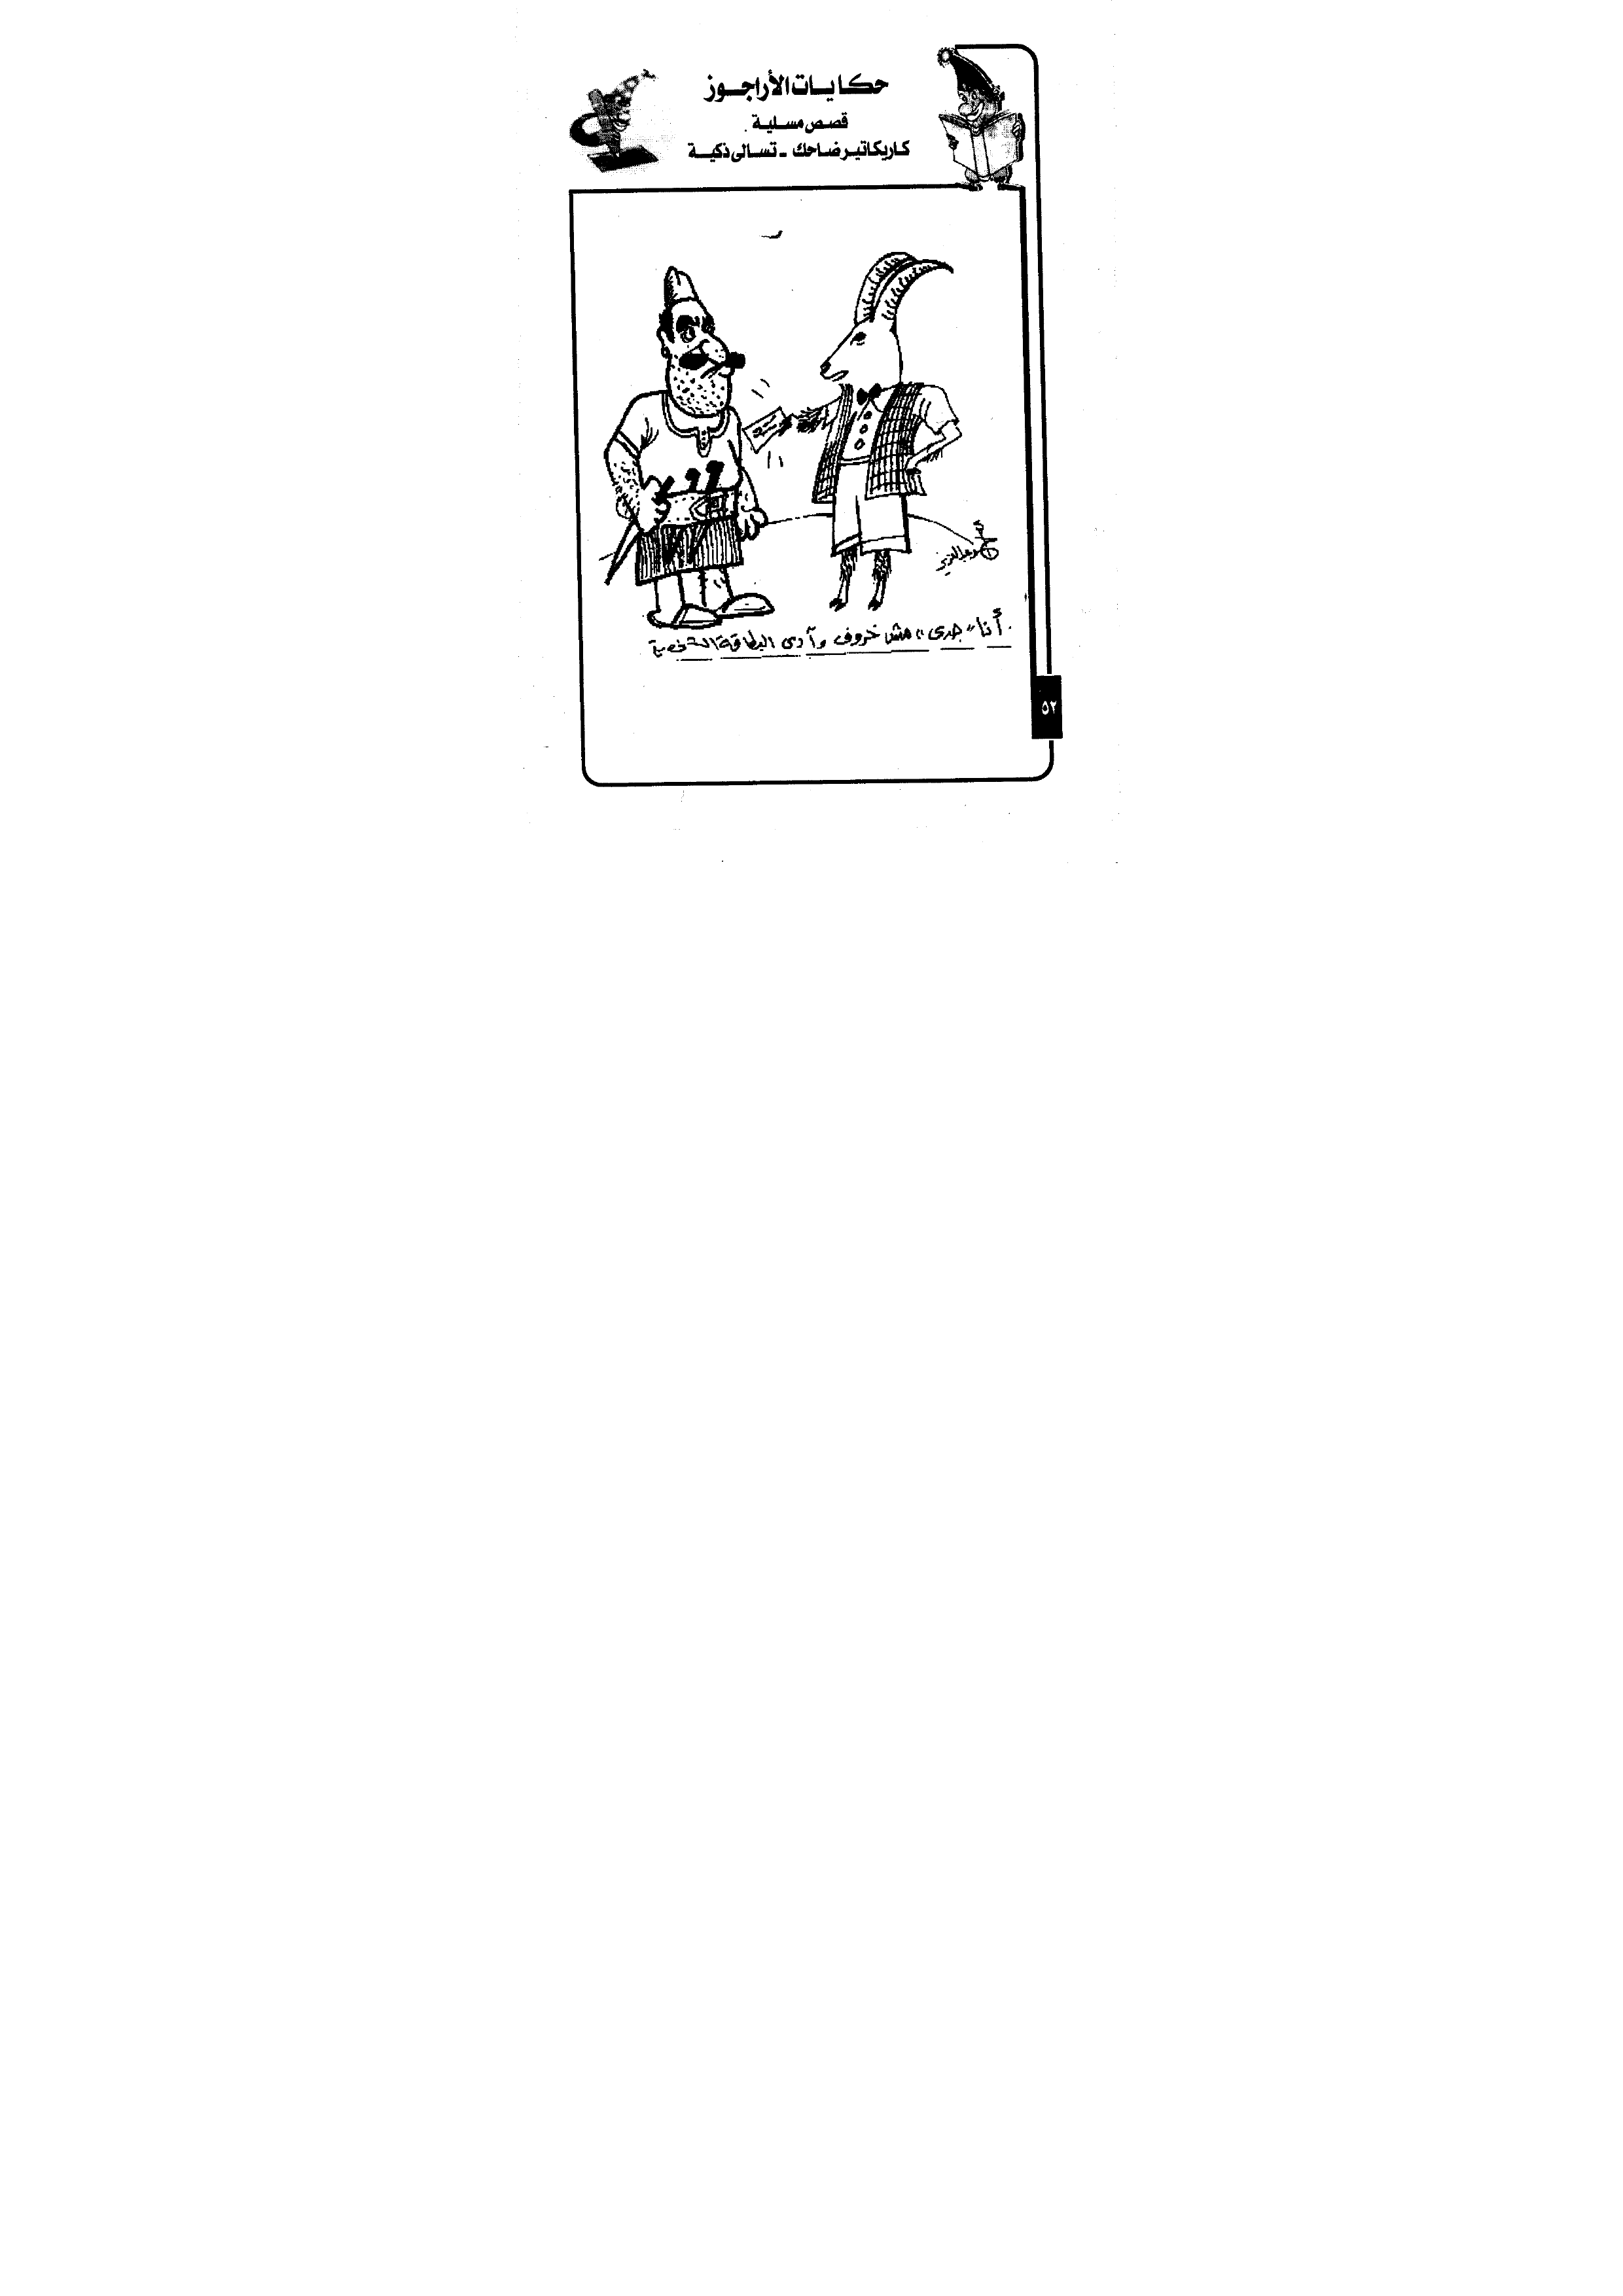 حكايات الأراجوز
قصص مسلية
كاريكاتير ضاحك - تسالى ذكية
أنا "جدى" مش خروف وآدى البطاقة الشخصية
٥٢